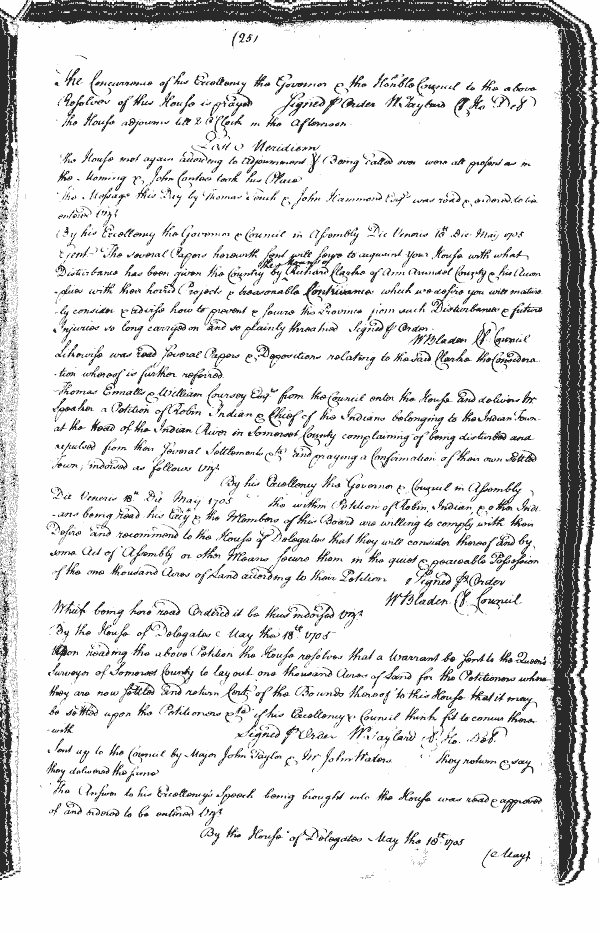 (25)
The Concurrence of his Excellency the Governor & the Honble Council to the above
Resolves of this House is prayed Signed p Order W Taylard Cl Ho Del
The House adjourns till 2 o Clock in the Afternoon
Post Meridiem
The House met again according to adjournment & being called over were all present as in
the Morning & John Contee took his Place
The Message this Day by Thomas Tench & John Hammond Esqrs was read & ordered to be
entered Vizt
By his Excellency the Governor & Council in Assembly Die Veneris 18th Die May 1705
Gent The several Papers herewith sent will serve to acquaint your House with what
Disturbance has been given the Country by Richard Clarke of Ann Arundel County & his Accom
-plices with their horrid Projects & treasonable Contrivances which we desire you will mature
-ly consider & advise how to prevent & secure the Province from such Disturbance & future
Injuries so long carryed on and so plainly threatned Signed p Order
W Bladen Cl Council
Likewise was read several Papers & Depositions relating to the said Clarke the Considera
-tion whereof is further referred
Thomas Ennalls & William Coursey Esqrs from the Council enter the House and delivers Mr
Speaker a Petition of Robin Indian & Chief of the Indians belonging to the Indian Town
at the Head of the Indian River in Somerset County complaining of being disturbed and
repulsed from their several Settlements &ca and praying a Confirmation of their own settled
Town; indorsed as follows vizt
By his Excellency the Governor & Council in Assembly
Die Veneris 18th Die May 1705 the within Petition of Robin, Indian, & other Indi
-ans being read his Excy & the Members of this Board are willing to comply with their
Desire and recommend to the House of Delegates that they will consider thereof and by
some Act of Assembly or other Means secure them in the quiet & peaceable Possession
of the one thousand Acres of Land according to their Petition Signed p Order
W Bladen Cl Council
Which being here read Ordered it be thus indorsed vizt
By the House of Delegates May the 18th 1705
Upon reading the above Petition the House resolves that a Warrant be sent to the Queens
Surveyor of Somerset County to lay out one thousand Acres of Land for the Petitioners where
they are now settled and return Certs of the Bounds thereof to this House that it may
be settled upon the Petitioners &ca if his Excellency & Council think fit to concur there
-with Signed p Order W Taylard Cl Ho. Del.
Sent up to the Council by Major John Taylor & Mr John Waters they return & say
they delivered the same
The Answer to his Excellency's Speech being brought into the House was read & approved
of and ordered to be entered Vizt
By the House of Delegates May the 18th 1705
(May